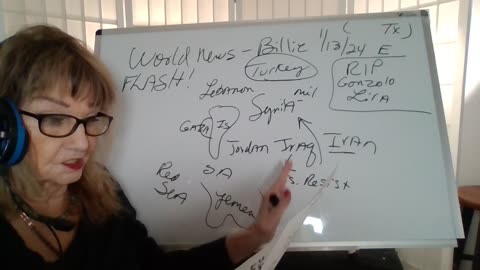 ( Tx)
World News - Billie 1/13/24 E
FLASH!
Turkey
RIP
Gonzolo
Lira
Lebanon
Syria mil
Gaza Is
Jordan Iraq Iran
Red SA
Sea
Is. Resist
Yemen